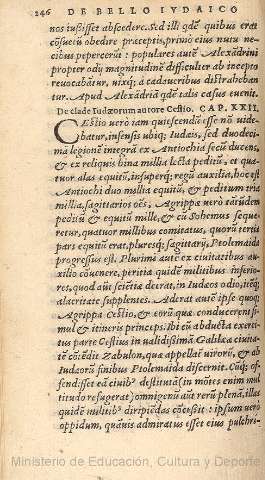 246 DE BELLO IVDAICO
nos iußisset abscedere. Sed illi qdẽ quibus erat
cõsueiũ obedire præceptis, primo eius nutu ne-
cibus pepercerũt: populares autẽ Alexãdrini
propter odij magnitudinẽ difficulter ab incepto
reuocabãtur, uixq; à cadaueribus distrahebãn
tur. Apud Alexãdriã qdẽ talis casus euenit.
De clade Iudæorum autore Cestio. CAP. XXII.
CEstio uerò iam quiescendũ esse nõ uide-
batur, infensis ubiq; Iudæis, sed duodeci-
mã legionẽ integrã ex Antiochia secũ ducens,
& ex reliquis bina millia lecta peditũ, et qua-
tuor alas equitũ, insuperq; regũ auxilia, hoc est
Antiochi duo millia equitũ, & peditum tria
millia, sagittarios oẽs, Agrippæ uerò tãtũdem
peditũ & equitũ mille, & cũ Sohemus seque-
retur, quatuor millibus comitatus, quorũ tertia
pars equitũ erat, pluresq; sagittarij, Ptolemaida
progressus est. Plurimi autẽ ex ciuitatibus au-
xilio cõuenere, peritia quidẽ militibus inferio-
res, quod aũt sciẽtiæ deerat, in Iudæos odio, itẽq;
alacritate supplentes. Aderat autẽ ipse quoq;
Agrippa Cestio, & eorũ quæ conducerent si-
mul & itineris princeps. Ibi cũ abducta exerci-
tus parte Cestius in ualidissimã Galileæ ciuita-
tẽ cõtẽdit Zabulon, quæ appellat̃ uirorũ, & ab
Iudæorũ finibus Ptolemaida discernit. Cũq; of-
fendisset eã ciuibꝰ destitutã (in mõtes enim mul
titudo refugerat) omnigenũ aũt rerũ plenã, illas
quidẽ militibꝰ diripiẽdas cõcessit: ipsum uerò
oppidum, quãuis admiratus esset eius pulchri-
Ministerio de Educación, Cultura y Deporte